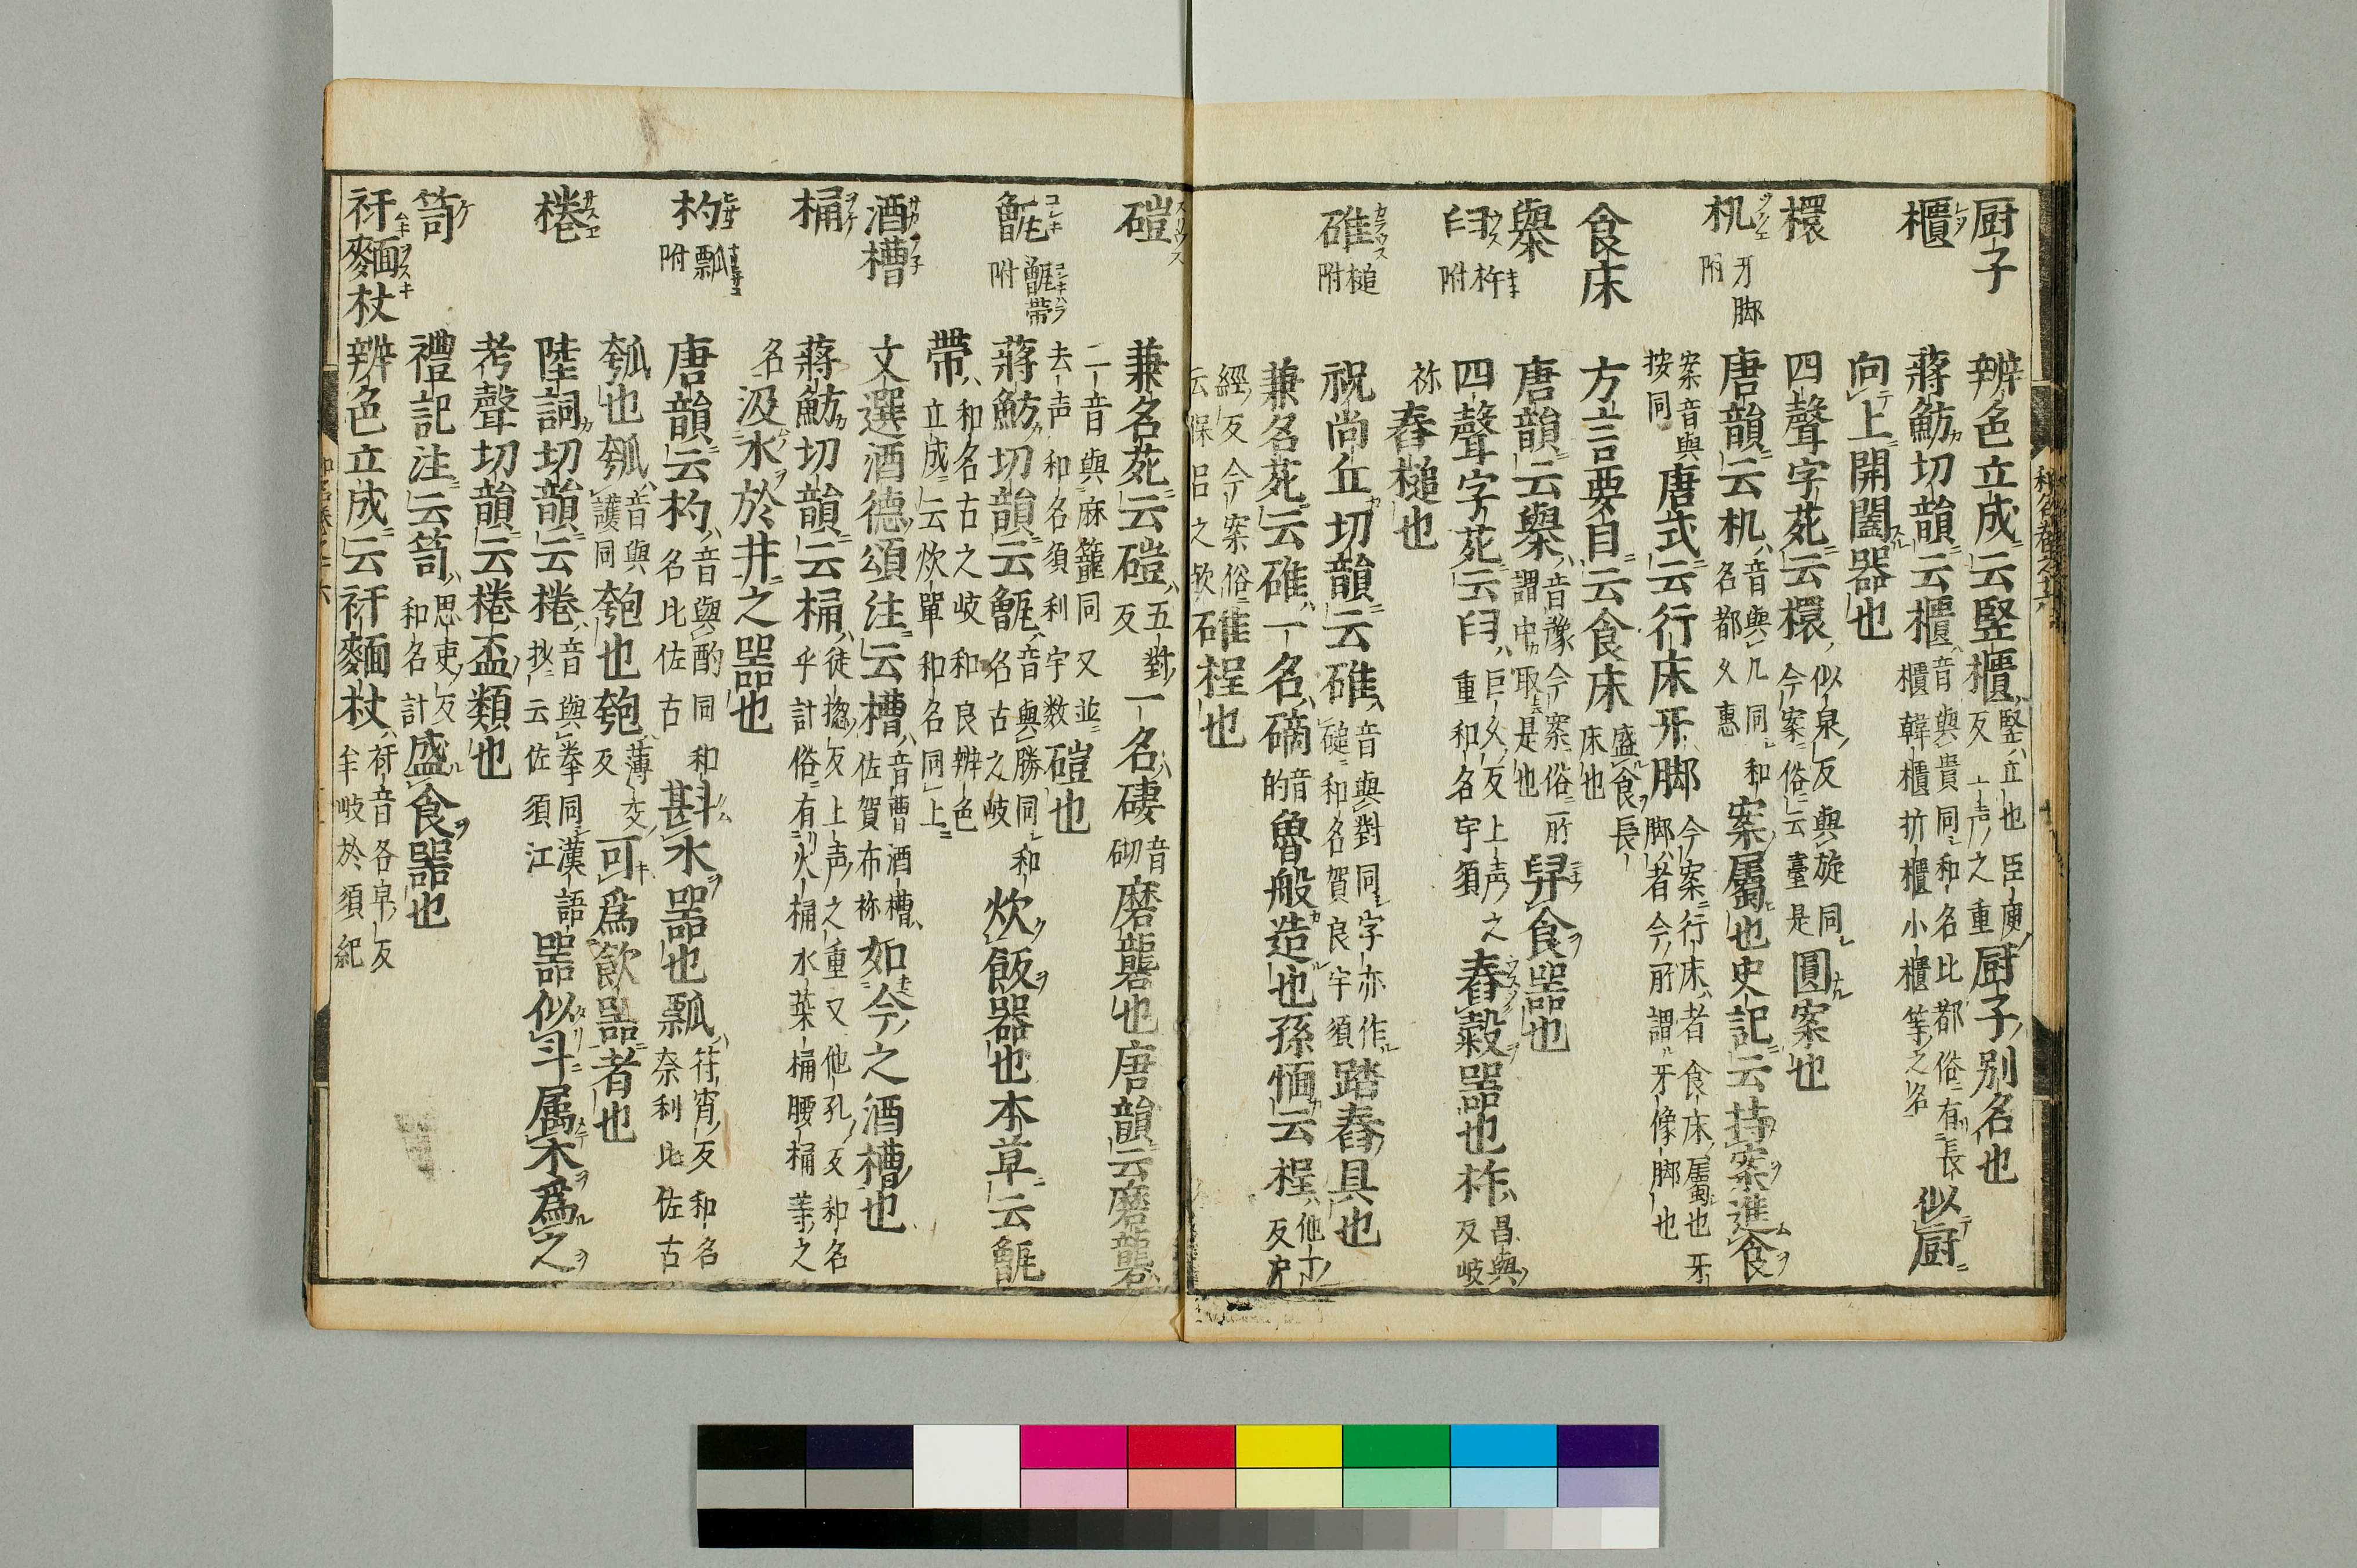 厨子 辨色立成云竪櫃竪立也臣庾反上声之重厨子別名也
櫃 蔣魴切韻云櫃音與貴同和名比都俗有長櫃韓櫃折櫃小櫃等之名似厨
向上開闔器也
檈 四聲字苑云檈似泉反與旋同今案俗云臺是圓案也
机牙脚附 唐韻云机音與几同和名都久惠案屬也史記云持案進食
案音與按同唐式云行床牙脚今案行床者食床屬也牙脚者今所謂牙像脚也
食床 方言要目云食床盛食長床也
轝 唐韻云轝音豫今案俗所謂中取是也舁食器也
臼杵附 四聲字苑云臼巨久反上声之重和名宇須舂穀器也杵昌與反岐
祢舂槌也
碓槌附 祝尚丘切韻云碓音與對同字亦作磓和名賀良宇須踏舂具也
兼名苑云碓一名碻音的魯般造也孫愐云桯他丁反戸
經反今案俗云保呂之欤碓桯也
磑 兼名苑云磑五對反一名䃀音砌磨礱也唐韻云磨礱
二音與麻籠同又並去声和名須利宇数磑也
甑甑帶附 蔣魴切韻云甑音與勝同和名古之岐炊飯器也本草云甑
帶和名古之岐和良辨色立成云炊單和名同上
酒槽 文選酒德頌注云槽音曹酒槽佐賀布祢如今之酒槽也
桶 蔣魴切韻云桶徒揔反上声之重又他孔反和名乎計俗有火桶水桶葉桶腰桶等之
名汲水於井之器也
杓瓢附 唐韻云杓音與酌同和名比佐古斟水器也瓢符宵反和名奈利比佐古
瓠也瓠音與護同匏也匏薄交反可爲飲器者也
棬 陸詞切韻云棬音與拳同漢語抄云佐須江器似斗属木爲之
考聲切韻云棬盃類也
笥 禮記注云笥思吏反和名計盛食器也
衦麺杖 辨色立成云衦麺杖衦音各旱反牟岐於須紀